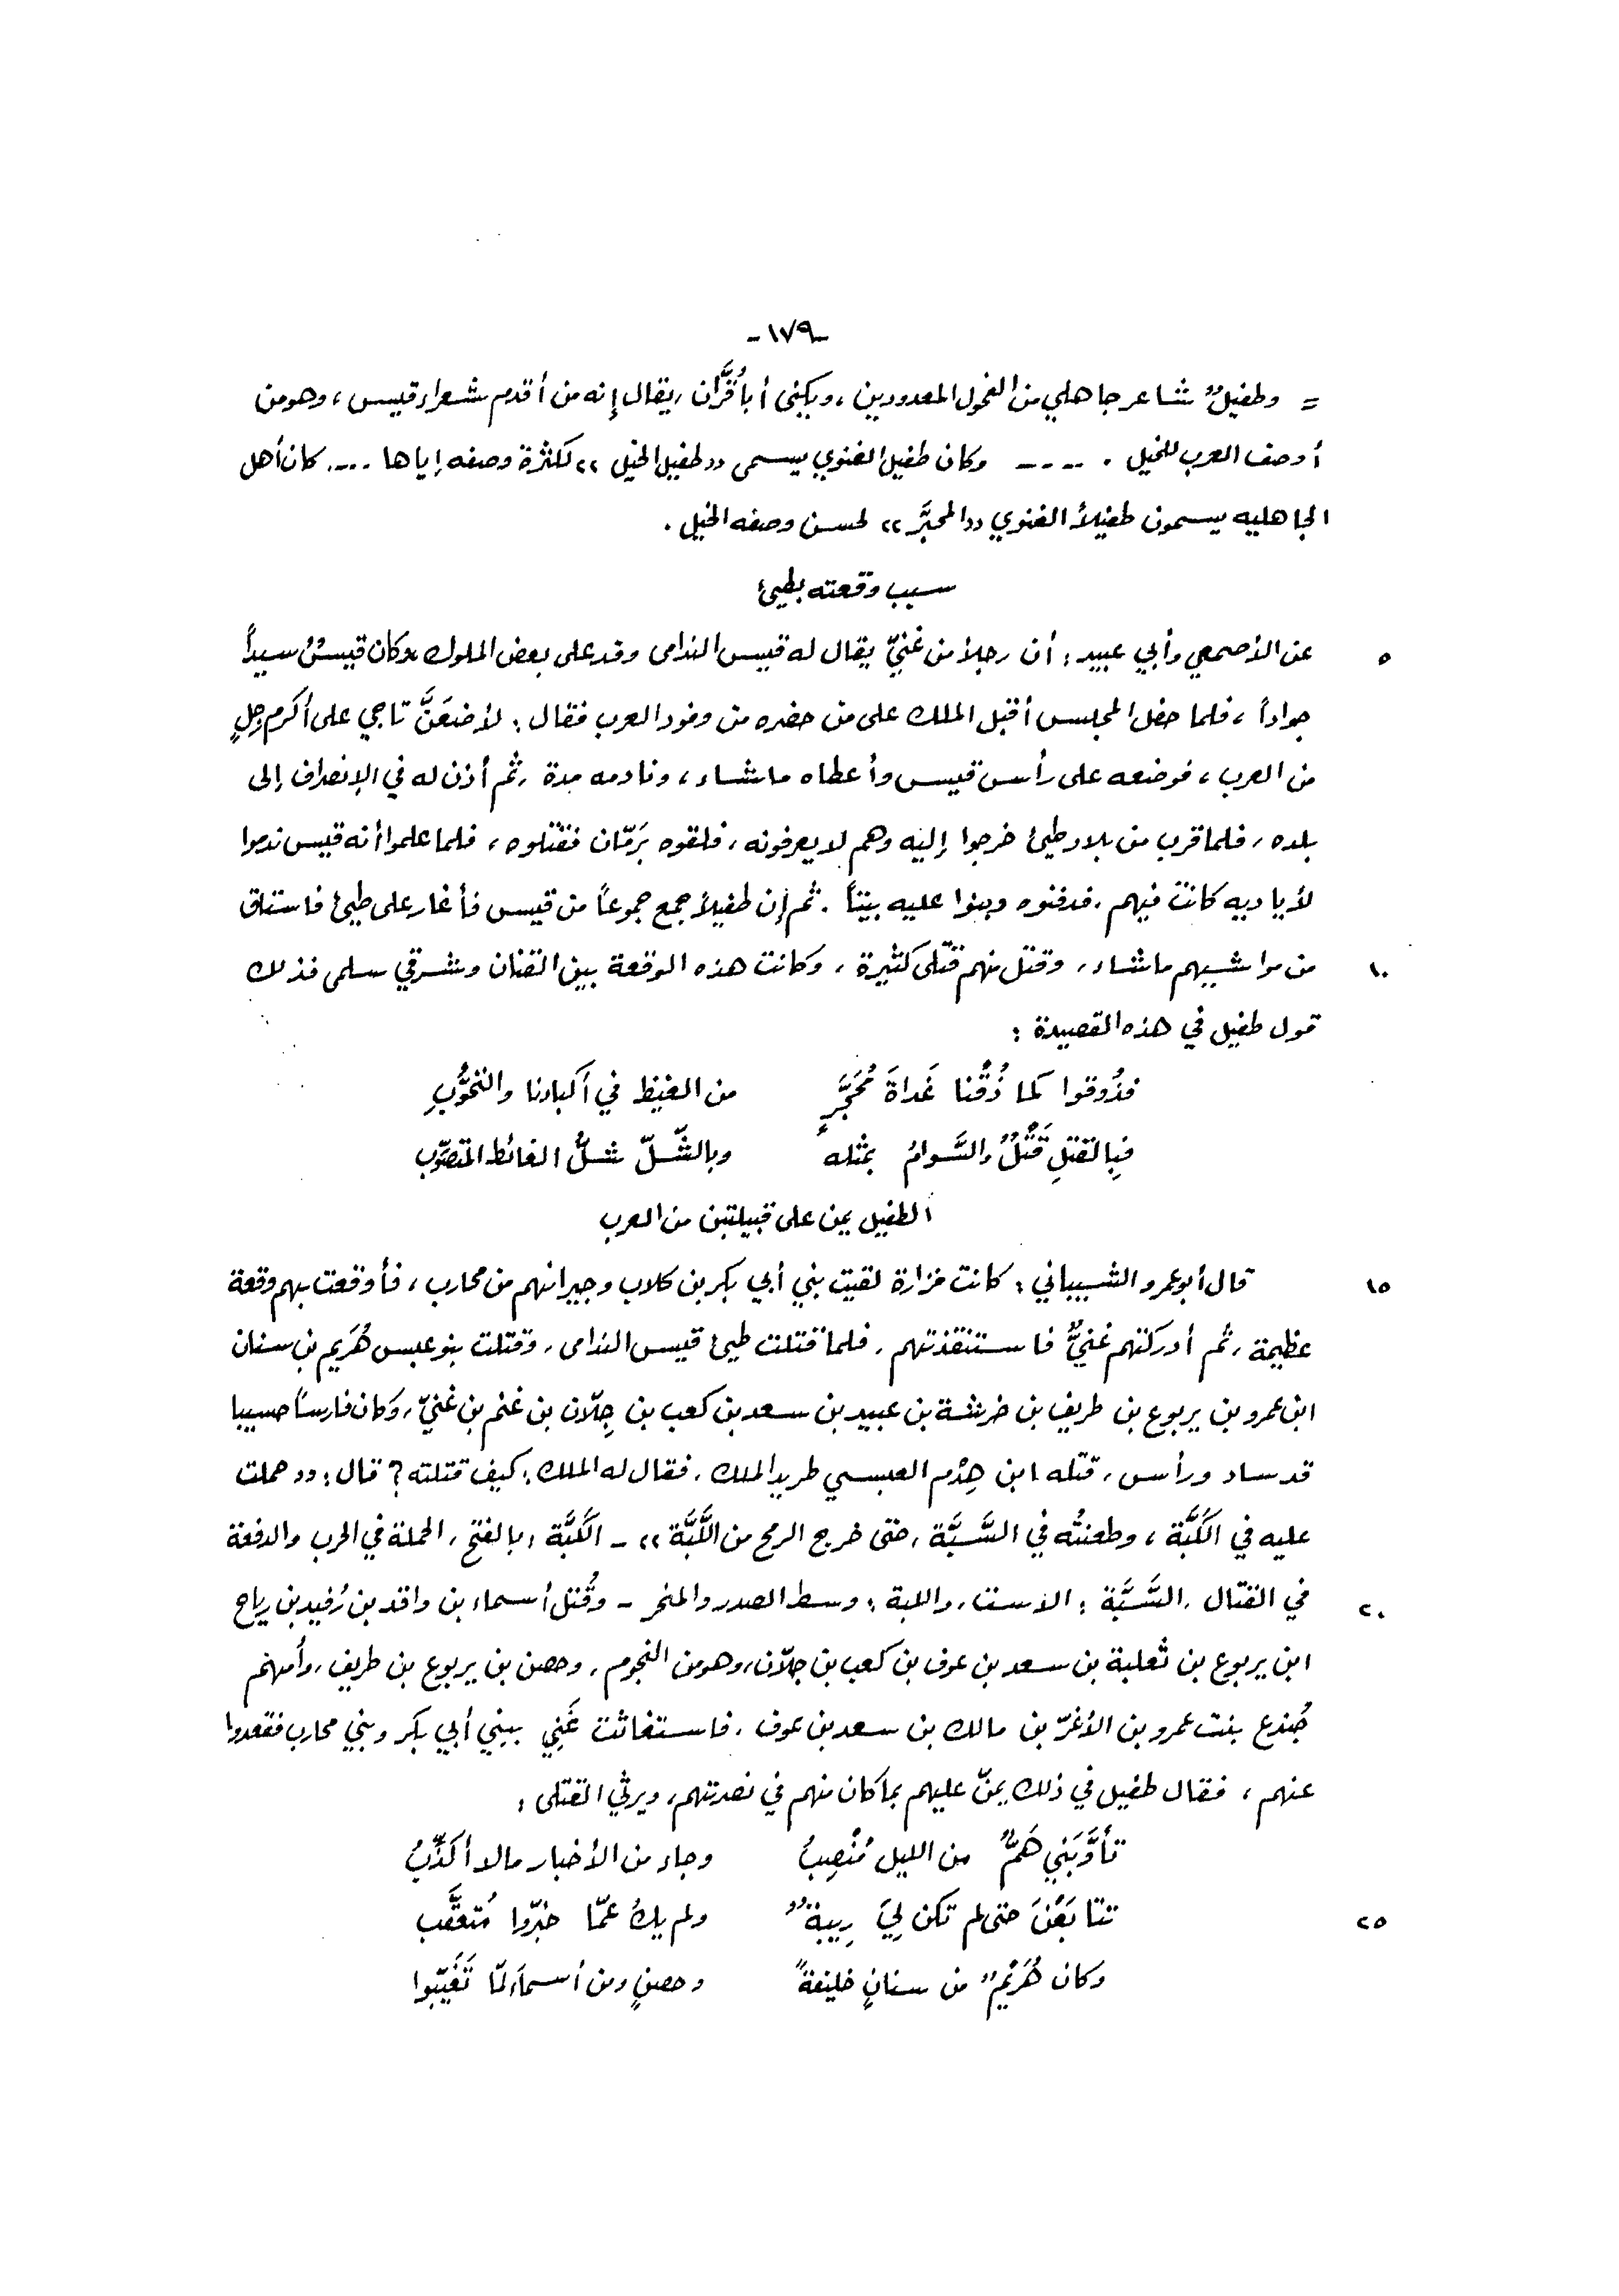 -١٧٩-
= وطفيلٌ شاعر جاهلي من الفحول المعدودين، ويكنى أبا قُرَّان، يقال إنه من أقدم شعراء قيس، وهو من
أوصف العرب للخيل . ---- وكان طفيل الغنوي يسمى ((طفيل الخيل)) لكثرة وصفه إياها .... كان أهل
الجاهليه يسمون طفيلاً الغنوي ((المحبَّر)) لحسن وصفه الخيل .
سبب وقعته بطيئ
٥ عن الأصمعي وأبي عبيد: أن رجلاً من غنيّ يقال له قيس الندامى وفد على بعض الملوك وكان قيسٌ سيداً
جواداً، فلما حفل المجلس أقبل الملك على من حضره من وفود العرب فقال: لأضعَنَّ تاجي على أكرم رجلٍ
من العرب، فوضعه على رأس قيس وأعطاه ماشاء، ونادمه مدة، ثم أذن له في الإنصراف إلى
بلده، فلما قرب من بلاد طيئ خرجوا إليه وهم لا يعرفونه، فلقوه بَرمّان فقتلوه، فلما علموا أنه قيس ندموا
لأياديه كانت فيهم، فدفنوه وبنوا عليه بيتاً . ثم إن طفيلاً جمع جموعاً من قيس فأغار على طيئ فاستاق
١٠ من مواشيهم ماشاء، وقتل منهم قتلى كثيرة، وكانت هذه الوقعة بين القنان وشرقي سلمى فذلك
قول طفيل في هذه القصيدة :
فذُوقوا كما ذُقْنا غَداةَ مُحَجَّرٍ من الغيظ في أكبادنا والتحوُّبِ
فبِالقتلِ قَتْلٌ والسَّوامُ بمثله وبالشّلّ شلُّ الغائط المتصوّب
الطفيل يمن على قبيلتين من العرب
١٥ قال أبو عمرو الشيباني : كانت فزارة لقيت بني أبي بكر بن كلاب وجيرانهم من محارب، فأوقعت بهم وقعة
عظيمة، ثم أدركتهم غنيٌّ فاستنقذتهم، فلما قتلت طيئ قيس الندامى، وقتلت بنو عبس هُرَيم بن سنان
ابن عمرو بن يربوع بن طريف بن خرشة بن عبيد بن سعد بن كعب بن جِلّان بن غنم بن غنيّ، وكان فارساً حسيبا
قد ساد ورأس، قتله ابن هِدْم العبسي طريد الملك، فقال له الملك: كيف قتلته؟ قال: ((حملت
عليه في الكَبَّة، وطعنتُه في السَّبَّة، حتى خرج الرمح من اللَّبَّة)) - الكَبَّة: بالفتح، الحملة في الحرب والدفعة
٢٠ في القتال، السَّبَّة : الاست، واللبة: وسط الصدر والمنحر - وقُتل أسماء بن واقد بن رُفيد بن رياح
ابن يربوع بن ثعلبة بن سعد بن عوف بن كعب بن جلّان، وهو من النجوم، وحصن بن يربوع بن طريف، وأمهم
جُندع بنت عمرو بن الأغرّ بن مالك بن سعد بن عوف، فاستغاثت غَنِي ببني أبي بكر وبني محارب فقعدوا
عنهم، فقال طفيل في ذلك يمنّ عليهم بما كان منهم في نصرتهم، ويرثي القتلى :
تأوَّبَني هَمٌّ من الليل مُنْصِبُ وجاء من الأخبار مالا أكَذِّبُ
٢٥ تتابَعْنَ حتى لم تكن ليَ رِيبةٌ ولم يكُ عمّا خبّروا مُتعقَّب
وكان هُرَيْمٌ من سنانٍ خليفةً وحصنٍ ومن أسماءَ لمّا تَغَيّبوا